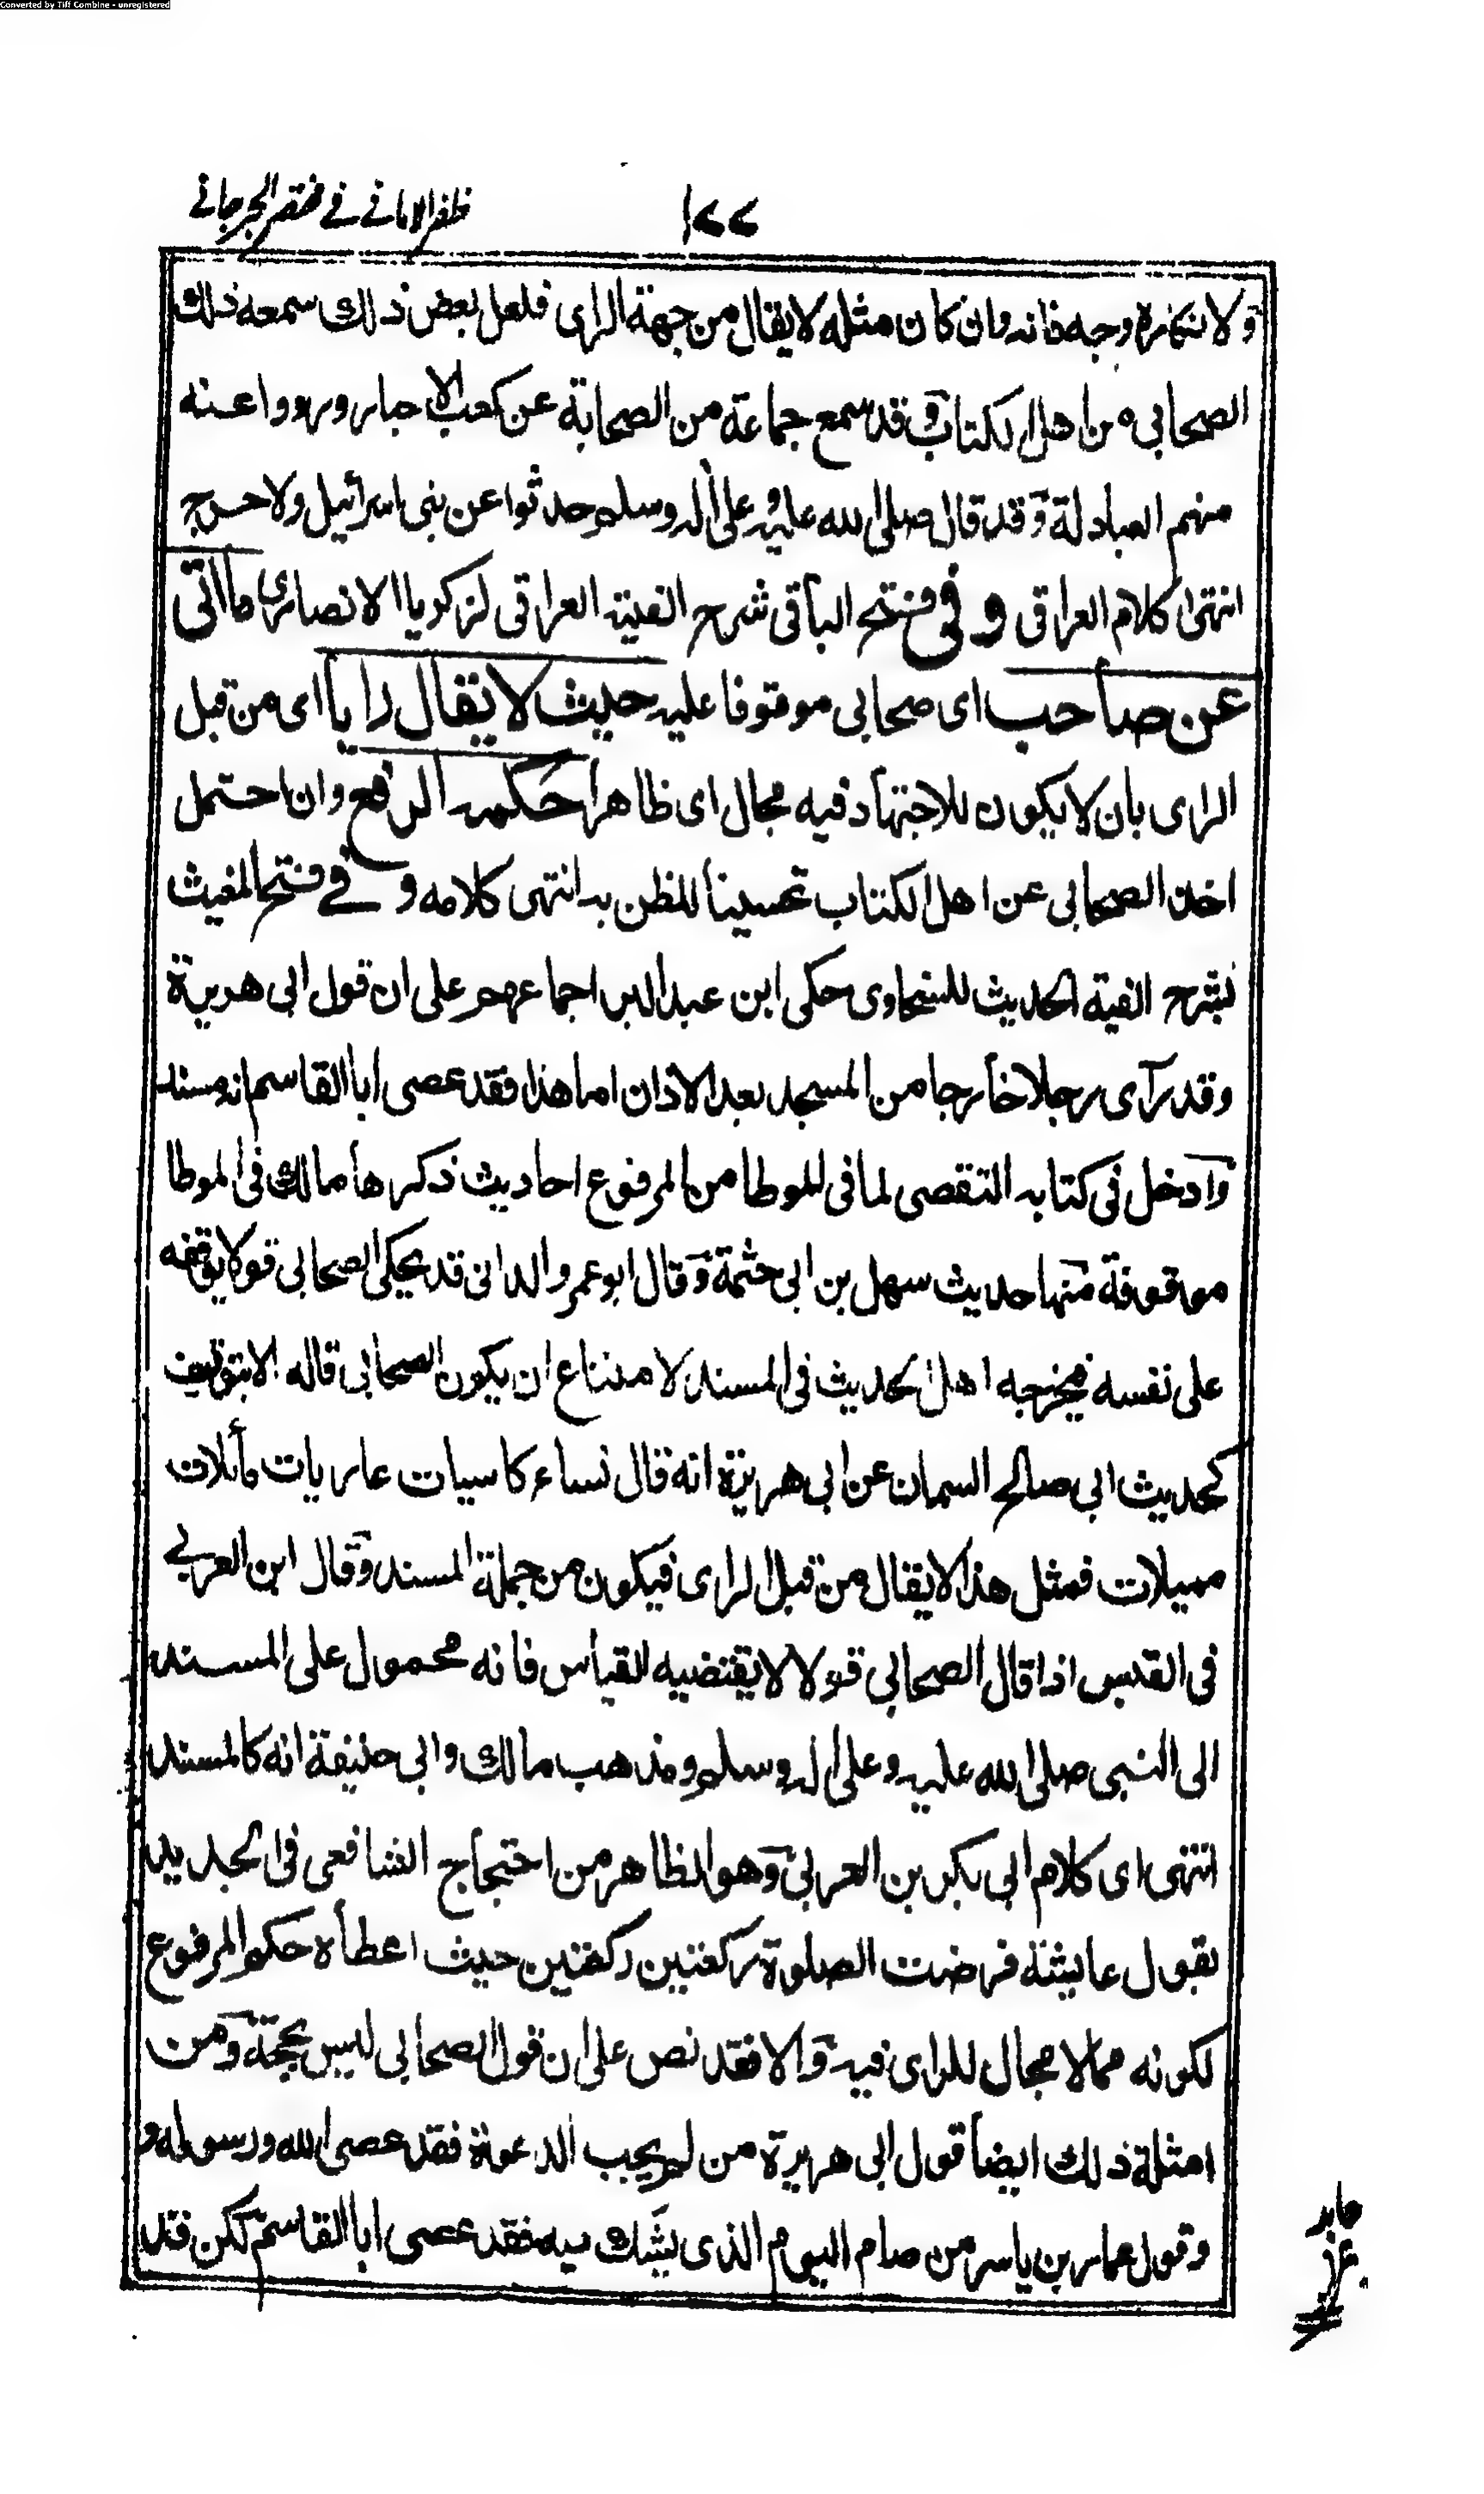 Converted by Tiff Combine - unregistered
١٧٧
ظفر الامانى فى مختصر الجرجانى
ولانكاره وجه فانه وان كان مثله لا يقال من جهة الراى فلعل بعض ذلك سمعه ذلك
الصحابى من اهل الكتاب وقد سمع جماعة من الصحابة عن كعب الاحبار ورووا عنه
منهم العبادلة وقد قال صلى الله عليه وعلى اله وسلم حدثوا عن بنى اسرائيل ولا حرج
انتهى كلام العراقى وفى فتح الباقى شرح الفية العراقى لزكريا الانصارى ما اتى
عن صاحب اى صحابى موقوفا عليه حيث لا يقال رايا اى من قبل
الراى بان لا يكون للاجتهاد فيه مجال اى ظاهرا حكمه الرفع وان احتمل
اخذ الصحابى عن اهل الكتاب تحسينا للظن به انتهى كلامه وفى فتح المغيث
بشرح الفية الحديث للسخاوى حكى ابن عبد البر اجماعهم على ان قول ابى هريرة
وقد رآى رجلا خارجا من المسجد بعد الاذان اما هذا فقد عصى ابا القاسم انه مسند
وادخل فى كتابه التقصى لما فى الموطا من المرفوع احاديث ذكرها مالك فى الموطا
موقوفة منها حديث سهل بن ابى حثمة وقال ابو عمرو الدانى قد يحكى الصحابى قولا يوقفه
على نفسه فيخرجه اهل الحديث فى المسند لامتناع ان يكون الصحابى قاله الا بتوقيف
كحديث ابى صالح السمان عن ابى هريرة انه قال نساء كاسيات عاريات مائلات
مميلات فمثل هذا لا يقال من قبل الراى فيكون من جملة المسند وقال ابن العربى
فى القبس اذا قال الصحابى قولا لا يقتضيه القياس فانه محمول على المسند
الى النبى صلى الله عليه وعلى اله وسلم ومذهب مالك وابى حنيفة انه كالمسند
انتهى اى كلام ابى بكر بن العربى وهو الظاهر من احتجاج الشافعى فى الجديد
بقول عايشة فرضت الصلوة ركعتين ركعتين حيث اعطاه حكم المرفوع
لكونه مما لا مجال للراى فيه والا فقد نص على ان قول الصحابى ليس بحجة ومن
امثلة ذلك ايضا قول ابى هريرة من لم يجب الدعوة فقد عصى الله ورسوله و
وقول عمار بن ياسر من صام اليوم الذى يشك فيه فقد عصى ابا القاسم لكن قد